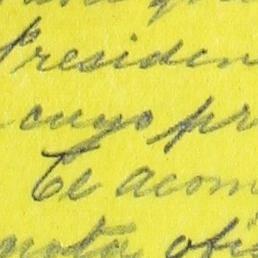 Presiden
cuyo pr
Te acom
nota ofi